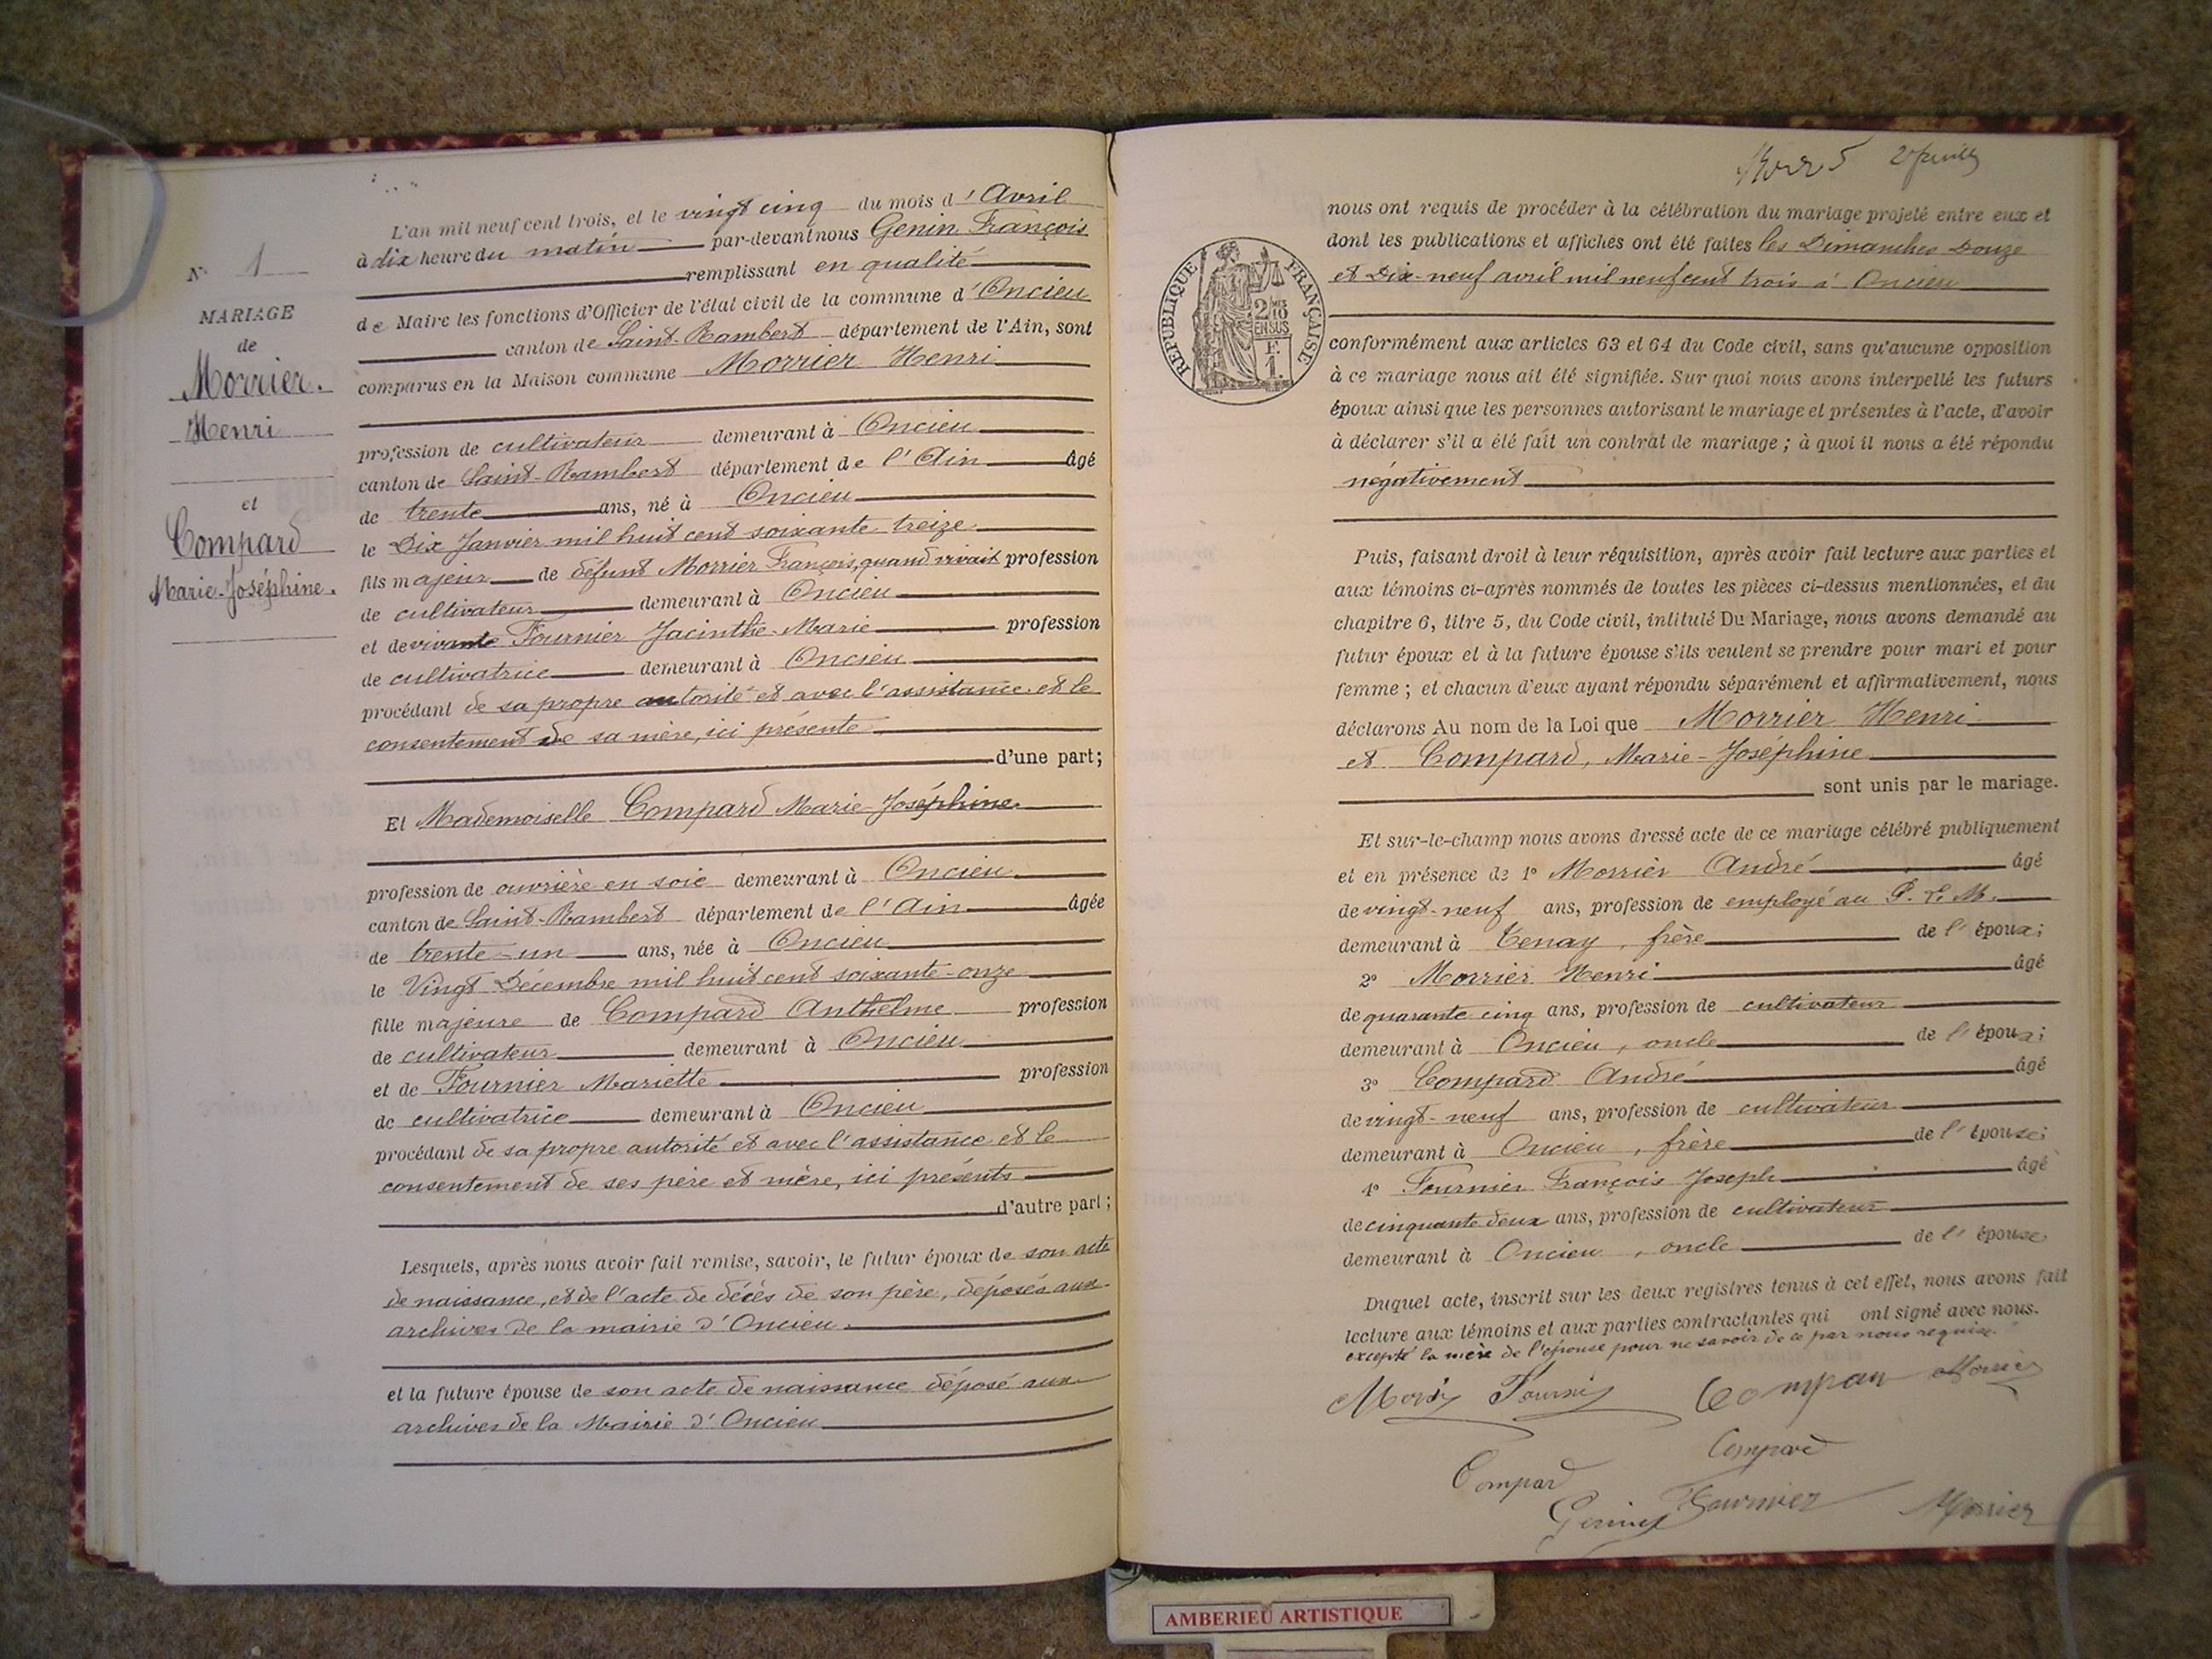 N° 1
MARIAGE
de
Morrier.
Henri
et
Compard
Marie-Joséphine.
L'an mil neuf cent trois, et le vingt cinq du mois d'Avril
à dix heure du matin par-devant nous Genin François
remplissant en qualité
de Maire les fonctions d'Officier de l'état civil de la commune d'Oncieu
canton de Saint-Rambert département de l'Ain, sont
comparus en la Maison commune Morrier Henri
profession de cultivateur demeurant à Oncieu
canton de Saint-Rambert département de l'Ain âgé
de trente ans, né à Oncieu
le Dix Janvier mil huit cent soixante treize
fils majeur de défunt Morrier François, quand vivait profession
de cultivateur demeurant à Oncieu
et de vivante Fournier Jacinthe-Marie profession
de cultivatrice demeurant à Oncieu
procédant de sa propre autorité et avec l'assistance et le
consentement de sa mère, ici présente
d'une part;
Et Mademoiselle Compard Marie-Joséphine.
profession de ouvrière en soie demeurant à Oncieu
canton de Saint-Rambert département de l'Ain âgée
de trente-un ans, née à Oncieu
le Vingt Décembre mil huit cent soixante-onze
fille majeure de Compard Anthelme profession
de cultivateur demeurant à Oncieu
et de Fournier Mariette profession
de cultivatrice demeurant à Oncieu
procédant de sa propre autorité et avec l'assistance et le
consentement de ses père et mère, ici présents
d'autre part;
Lesquels, après nous avoir fait remise, savoir, le futur époux de son acte
de naissance, et de l'acte de décès de son père, déposés aux
archives de la mairie d'Oncieu.
et la future épouse de son acte de naissance déposé aux
archives de la Mairie d'Oncieu
nous ont requis de procéder à la célébration du mariage projeté entre eux et
dont les publications et affiches ont été faites les Dimanches Douze
et Dix-neuf avril mil neuf cent trois à Oncieu
RÉPUBLIQUE FRANÇAISE
2/10
EN SUS
F.
1.
conformément aux articles 63 et 64 du Code civil, sans qu'aucune opposition
à ce mariage nous ait été signifiée. Sur quoi nous avons interpellé les futurs
époux ainsi que les personnes autorisant le mariage et présentes à l'acte, d'avoir
à déclarer s'il a été fait un contrat de mariage; à quoi il nous a été répondu
négativement
Puis, faisant droit à leur réquisition, après avoir fait lecture aux parties et
aux témoins ci-après nommés de toutes les pièces ci-dessus mentionnées, et du
chapitre 6, titre 5, du Code civil, intitulé Du Mariage, nous avons demandé au
futur époux et à la future épouse s'ils veulent se prendre pour mari et pour
femme; et chacun d'eux ayant répondu séparément et affirmativement, nous
déclarons Au nom de la Loi que Morrier Henri
et Compard, Marie-Joséphine
sont unis par le mariage.
Et sur-le-champ nous avons dressé acte de ce mariage célébré publiquement
et en présence de 1° Morrier André âgé
de vingt-neuf ans, profession de employé au P. L. M.
demeurant à Tenay, frère de l'époux;
2° Morrier Henri âgé
de quarante cinq ans, profession de cultivateur
demeurant à Oncieu, oncle de l'époux;
3° Compard André âgé
de vingt-neuf ans, profession de cultivateur
demeurant à Oncieu, frère de l'épouse;
4° Fournier François Joseph âgé
de cinquante deux ans, profession de cultivateur
demeurant à Oncieu, oncle de l'épouse
Duquel acte, inscrit sur les deux registres tenus à cet effet, nous avons fait
lecture aux témoins et aux parties contractantes qui ont signé avec nous.
excepté la mère de l'épouse pour ne savoir de ce par nous requise.
Compard
Compard
Fournier
Morrier
AMBERIEU ARTISTIQUE